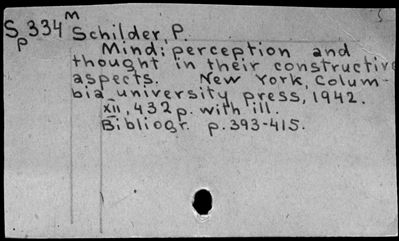 S 334 M Schilder, P.
p
Mind: perception and
thought in their constructive
aspects. New York, Colum-
bia university press, 1942.
XII, 432 p. with ill.
Bibliogr. p. 393-415.